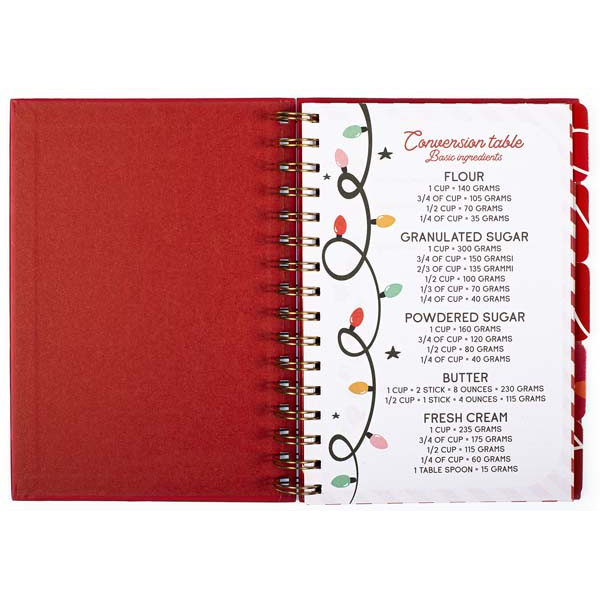 Conversion table
Basic ingredients
FLOUR
1 CUP = 140 GRAMS
3/4 OF CUP = 105 GRAMS
1/2 CUP = 70 GRAMS
1/4 OF CUP = 35 GRAMS
GRANULATED SUGAR
1 CUP = 300 GRAMS
3/4 OF CUP = 150 GRAMSI
2/3 OF CUP = 135 GRAMMI
1/2 CUP = 100 GRAMS
1/3 OF CUP = 70 GRAMS
1/4 OF CUP = 40 GRAMS
POWDERED SUGAR
1 CUP = 160 GRAMS
3/4 OF CUP = 120 GRAMS
1/2 CUP = 80 GRAMS
1/4 OF CUP = 40 GRAMS
BUTTER
1 CUP = 2 STICK = 8 OUNCES = 230 GRAMS
1/2 CUP = 1 STICK = 4 OUNCES = 115 GRAMS
FRESH CREAM
1 CUP = 235 GRAMS
3/4 OF CUP = 175 GRAMS
1/2 CUP = 115 GRAMS
1/4 OF CUP = 60 GRAMS
1 TABLE SPOON = 15 GRAMS